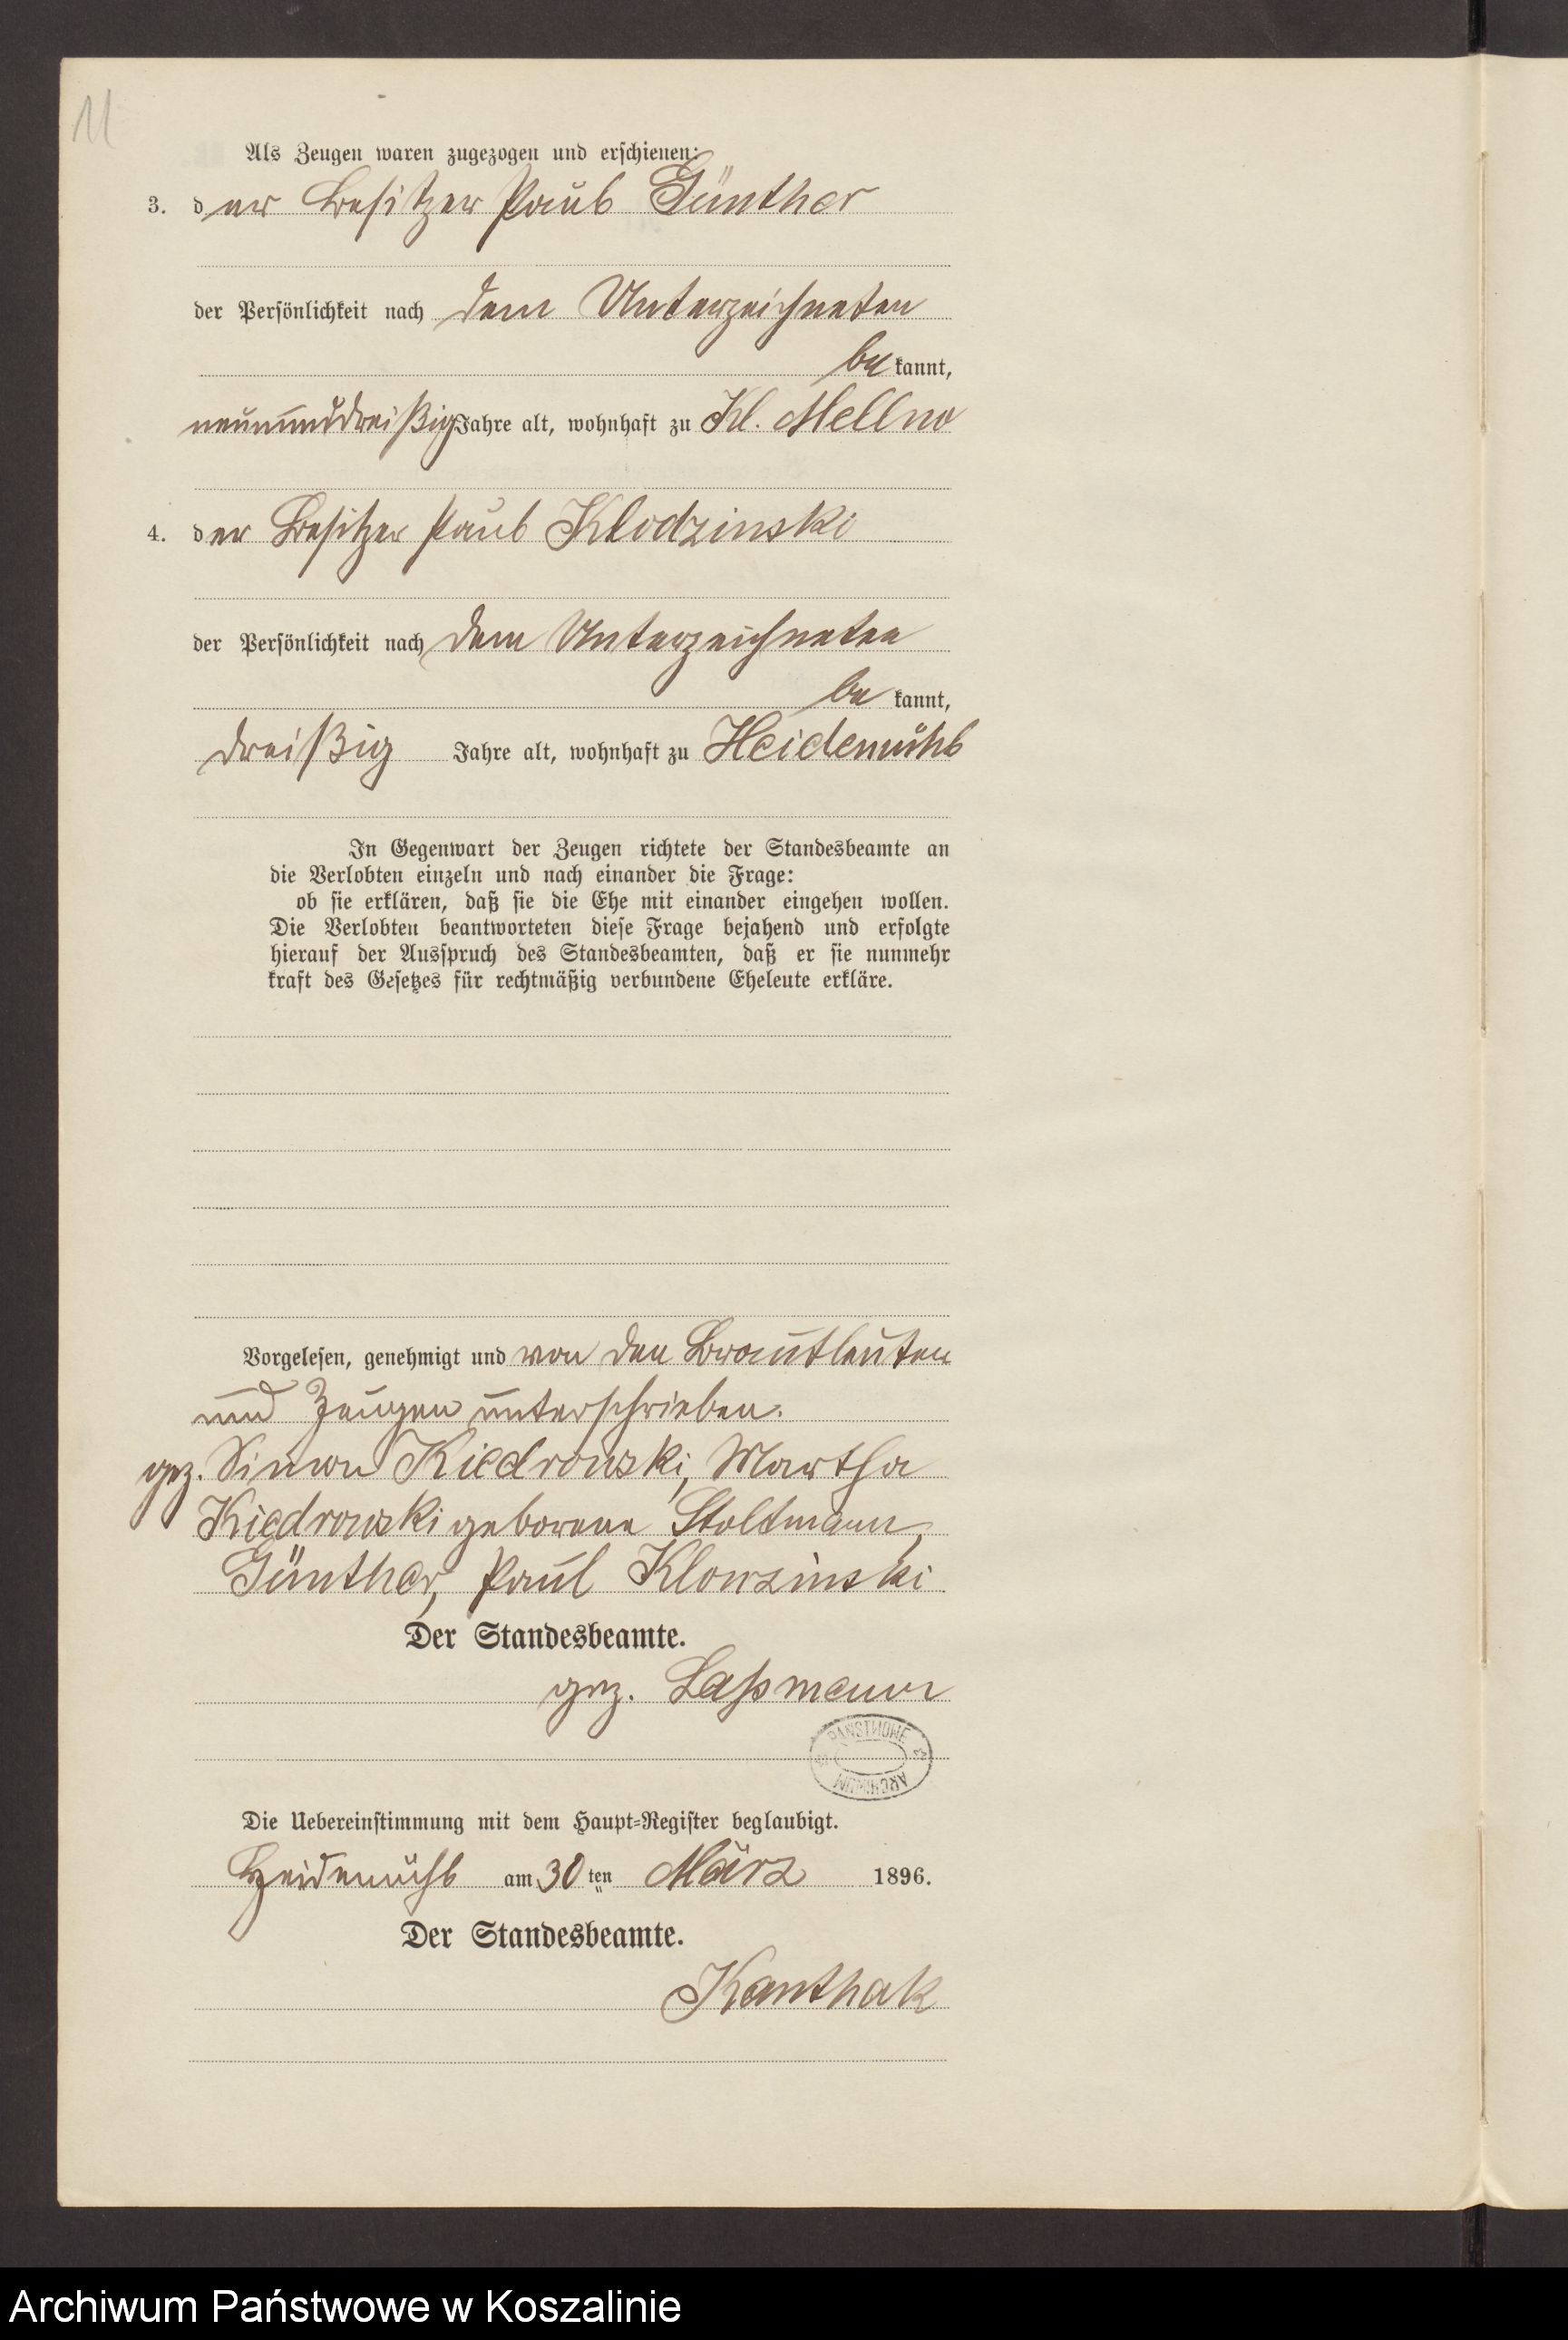 11
Als Zeugen waren zugezogen und erschienen:
3. der Besitzer Paul Günther
der Persönlichkeit nach dem Unterzeichneten
bekannt,
neununddreißig Jahre alt, wohnhaft zu Kl. Mellno
4. der Besitzer Paul Klodzinski
der Persönlichkeit nach dem Unterzeichneten
bekannt,
dreißig Jahre alt, wohnhaft zu Heidemühl
In Gegenwart der Zeugen richtete der Standesbeamte an
die Verlobten einzeln und nach einander die Frage:
ob sie erklären, daß sie die Ehe mit einander eingehen wollen.
Die Verlobten beantworteten diese Frage bejahend und erfolgte
hierauf der Ausspruch des Standesbeamten, daß er sie nunmehr
kraft des Gesetzes für rechtmäßig verbundene Eheleute erkläre.
Vorgelesen, genehmigt und von den Brautleuten
und Zeugen unterschrieben.
gez. Simon Kiedrowski, Martha
Kiedrowski geborene Stoltmann,
Günther, Paul Klowzinski
Der Standesbeamte.
gez. Laßmann
PAŃSTWOWE
ARCHIWUM
Die Uebereinstimmung mit dem Haupt-Register beglaubigt.
Heidemühl am 30ten März 1896.
Der Standesbeamte.
Kanthak
Archiwum Państwowe w Koszalinie